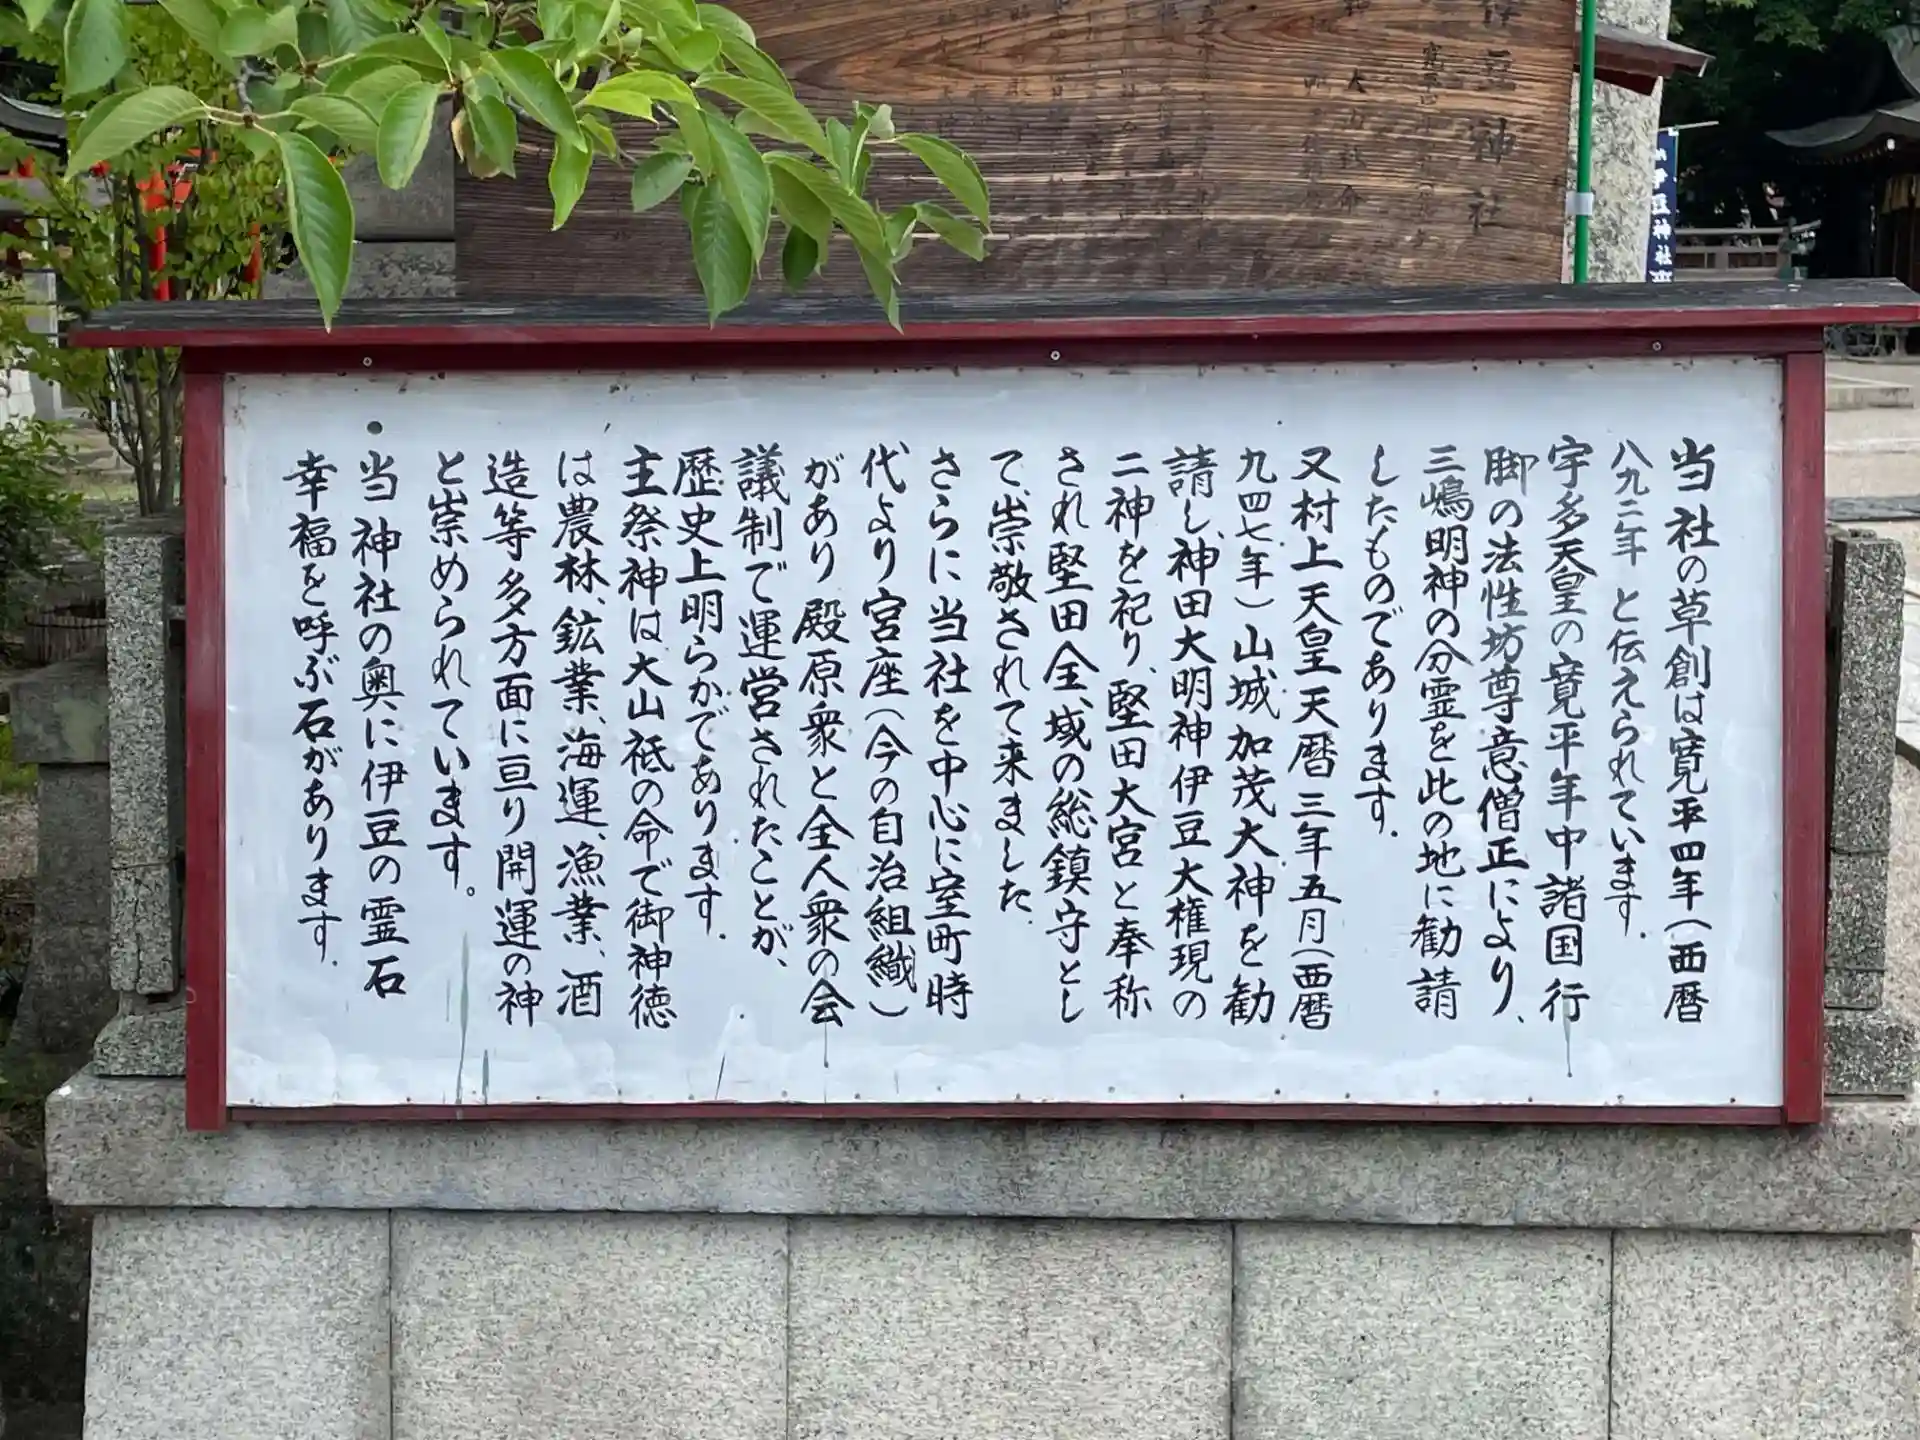 当社の草創は寛平四年(西暦
八九二年 と伝えられています.
宇多天皇の寛平年中諸国行
脚の法性坊尊意僧正により、
三嶋明神の分霊を此の地に勧請
したものであります.
又村上天皇天暦三年五月(西暦
九四七年)山城加茂大神を勧
請し、神田大明神伊豆大権現の
二神を祀り、堅田大宮と奉称
され堅田全域の総鎮守とし
て、崇敬されて来ました.
さらに当社を中心に室町時
代より宮座(今の自治組織)
があり殿原衆と全人衆の会
議制で運営されたことが、
歴史上明らかであります.
主祭神は、大山祗の命で御神徳
は農林、鉱業、海運、漁業、酒
造等多方面に亘り開運の神
と崇められています。
当神社の奥に伊豆の霊石
幸福を呼ぶ石があります.
豆神社
豆神社